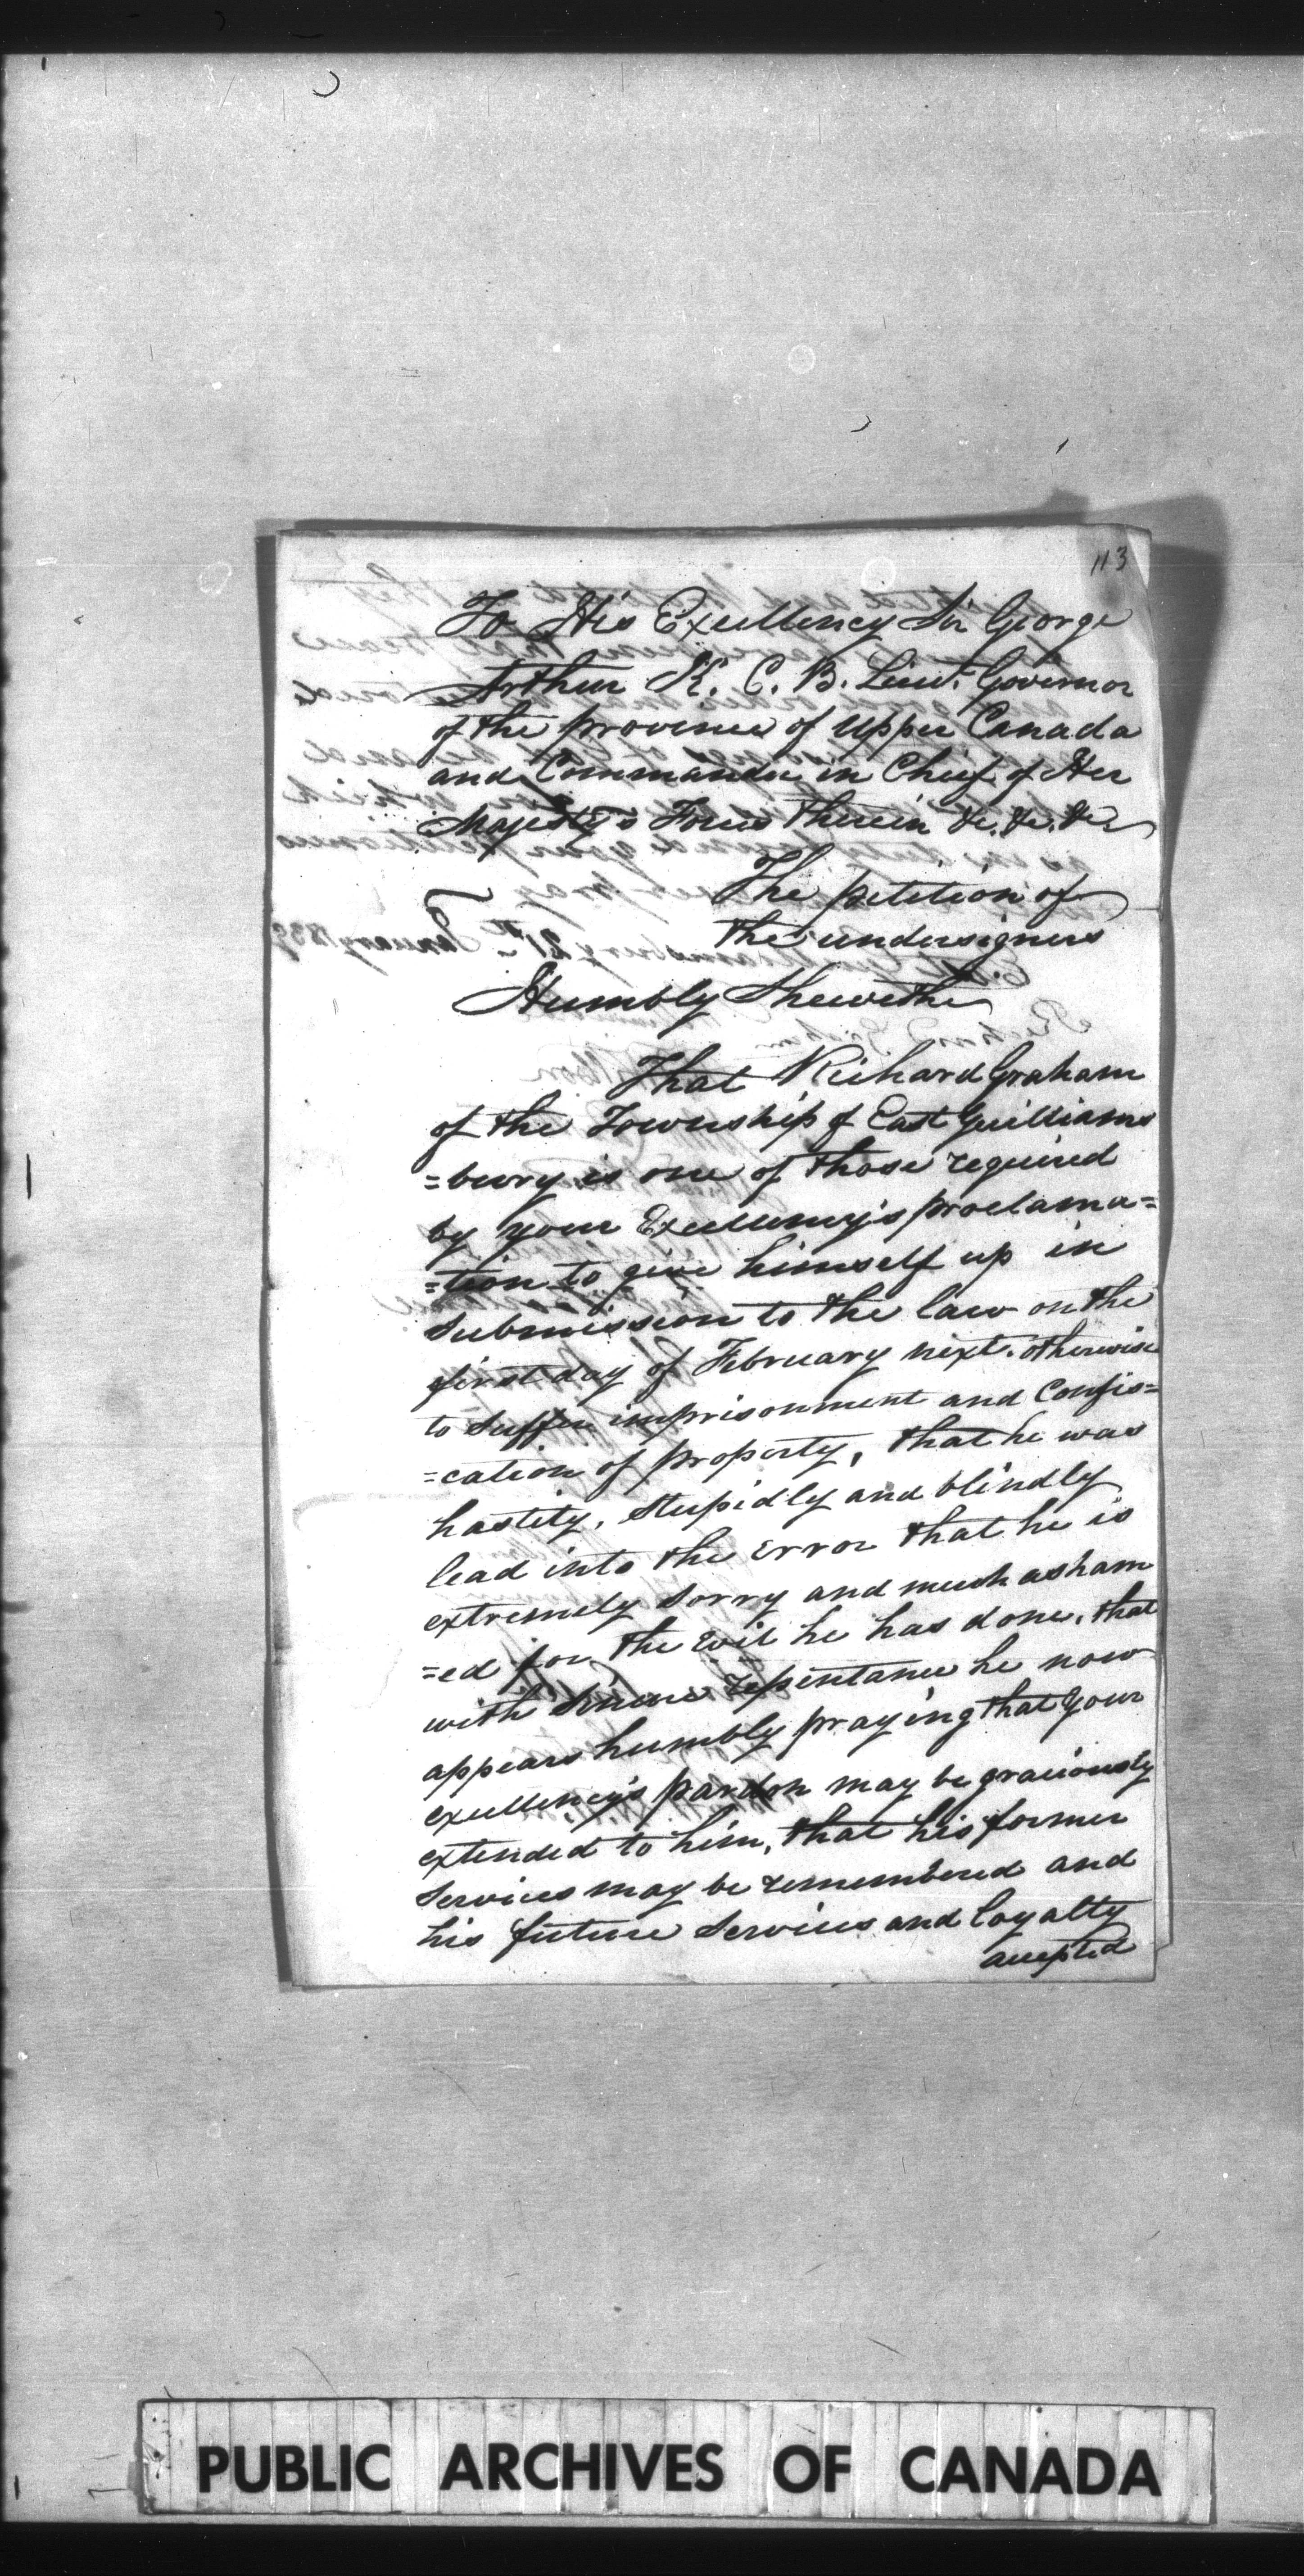 113
To His Excellency Sir George
Arthur K. C. B. Lieut. Governor
of the province of Upper Canada
and Commander in Chief of Her
Majesty's Forces therein &c. &c. &c
The petition of
the undersigners
Humbly Sheweth
That Richard Graham
of the Township of East Guilliams
=bury is one of those required
by your Excellency's proclama=
=tion to give himself up in
submission to the law on the
first day of February next. otherwise
to suffer imprisonment and Confis=
=cation of property, that he was
hastily, stupidly and blindly
lead into the error that he is
extremely sorry and much asham
=ed for the evil he has done, that
with sincere repentance he now
appears humbly praying that your
excellency's pardon may be graciously
extended to him, that his former
services may be remembered and
his future services and loyalty
accepted
PUBLIC ARCHIVES OF CANADA